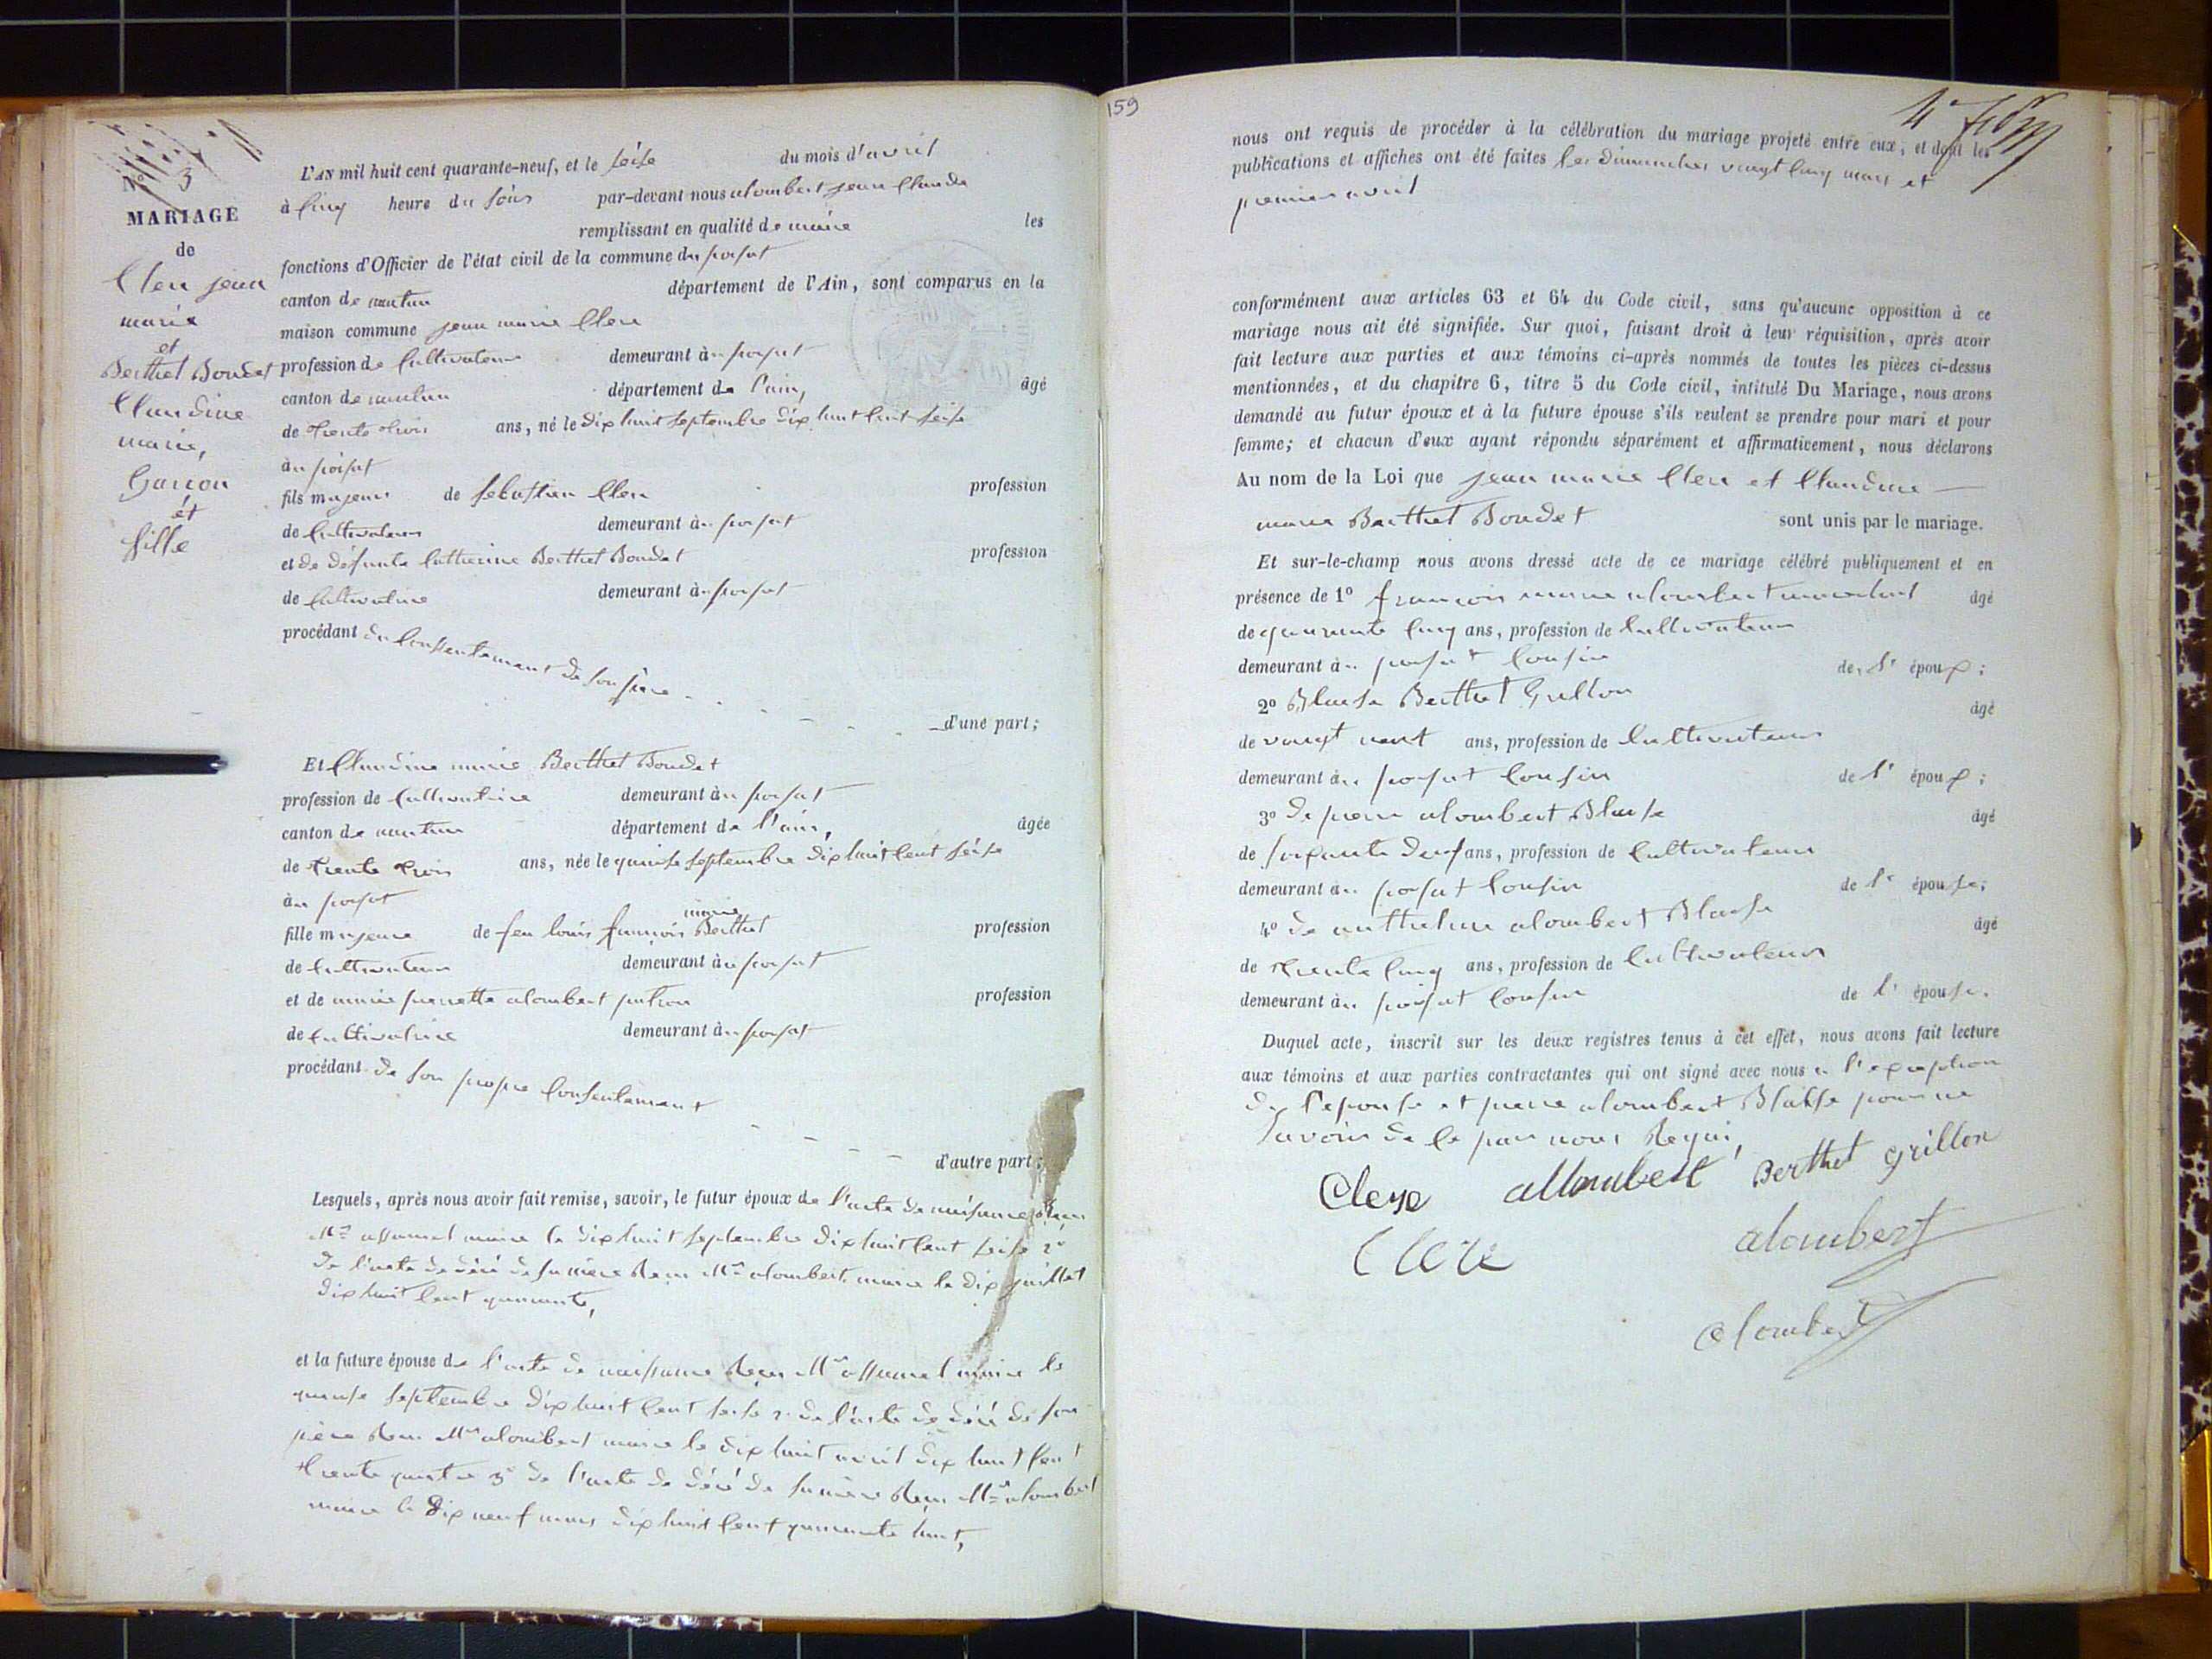 N° 3
MARIAGE
de
Clerc jean
marie
et
Berthet Boudet
Claudine
marie,
Garcon
et
fille
L'AN mil huit cent quarante-neuf, et le seise du mois d'avril
à cinq heure du soir par-devant nous alombert jean Claude
remplissant en qualité de maire les
fonctions d'Officier de l'état civil de la commune du poisat
canton de nantua département de l'Ain, sont comparus en la
maison commune jean marie Clerc
profession de Cultivateur demeurant au poisat
canton de nantua département de l'ain, âgé
de trente trois ans, né le dix huit septembre dix huit Cent seise
au poisat
fils majeur de sebastien Clerc profession
de Cultivateur demeurant au poisat
et de défunte Catherine Berthet Boudet profession
de Cultivatrice demeurant au poisat
procédant du Consentement de son père
d'une part;
Et Claudine marie Berthet Boudet
profession de Cultivatrice demeurant au poisat
canton de nantua département de l'ain, âgée
de trente trois ans, née le quinse septembre dix huit Cent seise
au poisat
marie
fille majeure de feu louis françois Berthet profession
de Cultivateur demeurant au poisat
et de marie pierrette alombert profession
de Cultivatrice demeurant au poisat
procédant de son propre Consentement
d'autre part;
Lesquels, après nous avoir fait remise, savoir, le futur époux de l'acte de naissance
Mr assumel maire le dix huit septembre dix huit Cent seise 2°
de l'acte de décé de sa mère Recu Mr alombert maire le dix juillet
dix huit Cent quarante,
et la future épouse de l'acte de naissance Recu Mr assumel maire le
quinse septembre dix huit Cent seise 2° de l'acte de décé de son
père Recu Mr alombert maire le dix huit avril dix huit Cent
trente quatre 3° de l'acte de décé de sa mère Recu Mr alombert
maire le dix neuf mars dix huit Cent quarante huit,
159
nous ont requis de procéder à la célébration du mariage projeté entre eux, et dont les
publications et affiches ont été faites les dimanches vingt Cinq mars et
premier avril
conformément aux articles 63 et 64 du Code civil, sans qu'aucune opposition à ce
mariage nous ait été signifiée. Sur quoi, faisant droit à leur réquisition, après avoir
fait lecture aux parties et aux témoins ci-après nommés de toutes les pièces ci-dessus
mentionnées, et du chapitre 6, titre 5 du Code civil, intitulé Du Mariage, nous avons
demandé au futur époux et à la future épouse s'ils veulent se prendre pour mari et pour
femme; et chacun d'eux ayant répondu séparément et affirmativement, nous déclarons
Au nom de la Loi que jean marie Clerc et Claudine
marie Berthet Boudet sont unis par le mariage.
Et sur-le-champ nous avons dressé acte de ce mariage célébré publiquement et en
présence de 1° françois marie alombert âgé
de quarante Cinq ans, profession de Cultivateur
demeurant au poisat Cousin de l' époux;
2° Blaise Berthet Grillon âgé
de vingt neuf ans, profession de Cultivateur
demeurant au poisat Cousin de l' époux;
3° de pierre alombert Blaise âgé
de soixante deux ans, profession de Cultivateur
demeurant au poisat Cousin de l' épouse;
4° de anthelme alombert Blaise âgé
de trente Cinq ans, profession de Cultivateur
demeurant au poisat Cousin de l' épouse.
Duquel acte, inscrit sur les deux registres tenus à cet effet, nous avons fait lecture
aux témoins et aux parties contractantes qui ont signé avec nous a l'exception
de l'epouse et pierre alombert Blaise pour ne
savoir de ce par nous Requi,
Clere allombert Berthet grillon
Clere alombert
alombert